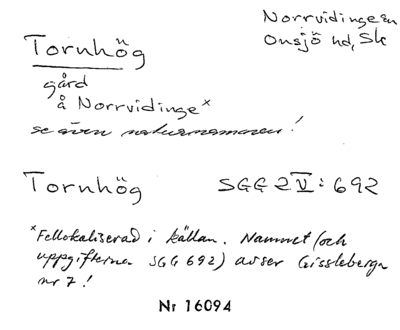 Norrvidinge sn
Onsjö hd, Sk
Tornhög
gård
å Norrvidinge x
se även naturnamnen!
Tornhög SGG 2 V: 692
x Fellokaliserad i källan. Namnet (och
uppgifterna SGG 692) avser Gissleberga
nr 7!
Nr 16094